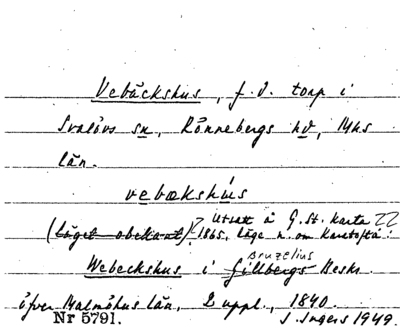 Vebäckshus, f. d. torp i
Svalövs sn, Rönnebergs hd, Mhs
län.
vebækshús
(läget obekant)? Utsatt å G. St. karta
1865, läge n. om Karstofta:
Webeckshus i Gillbergs Bruzelius Beskr.
öfver Malmöhus län, 2 uppl., 1840.
Nr 5791. S. Ingers 1949.